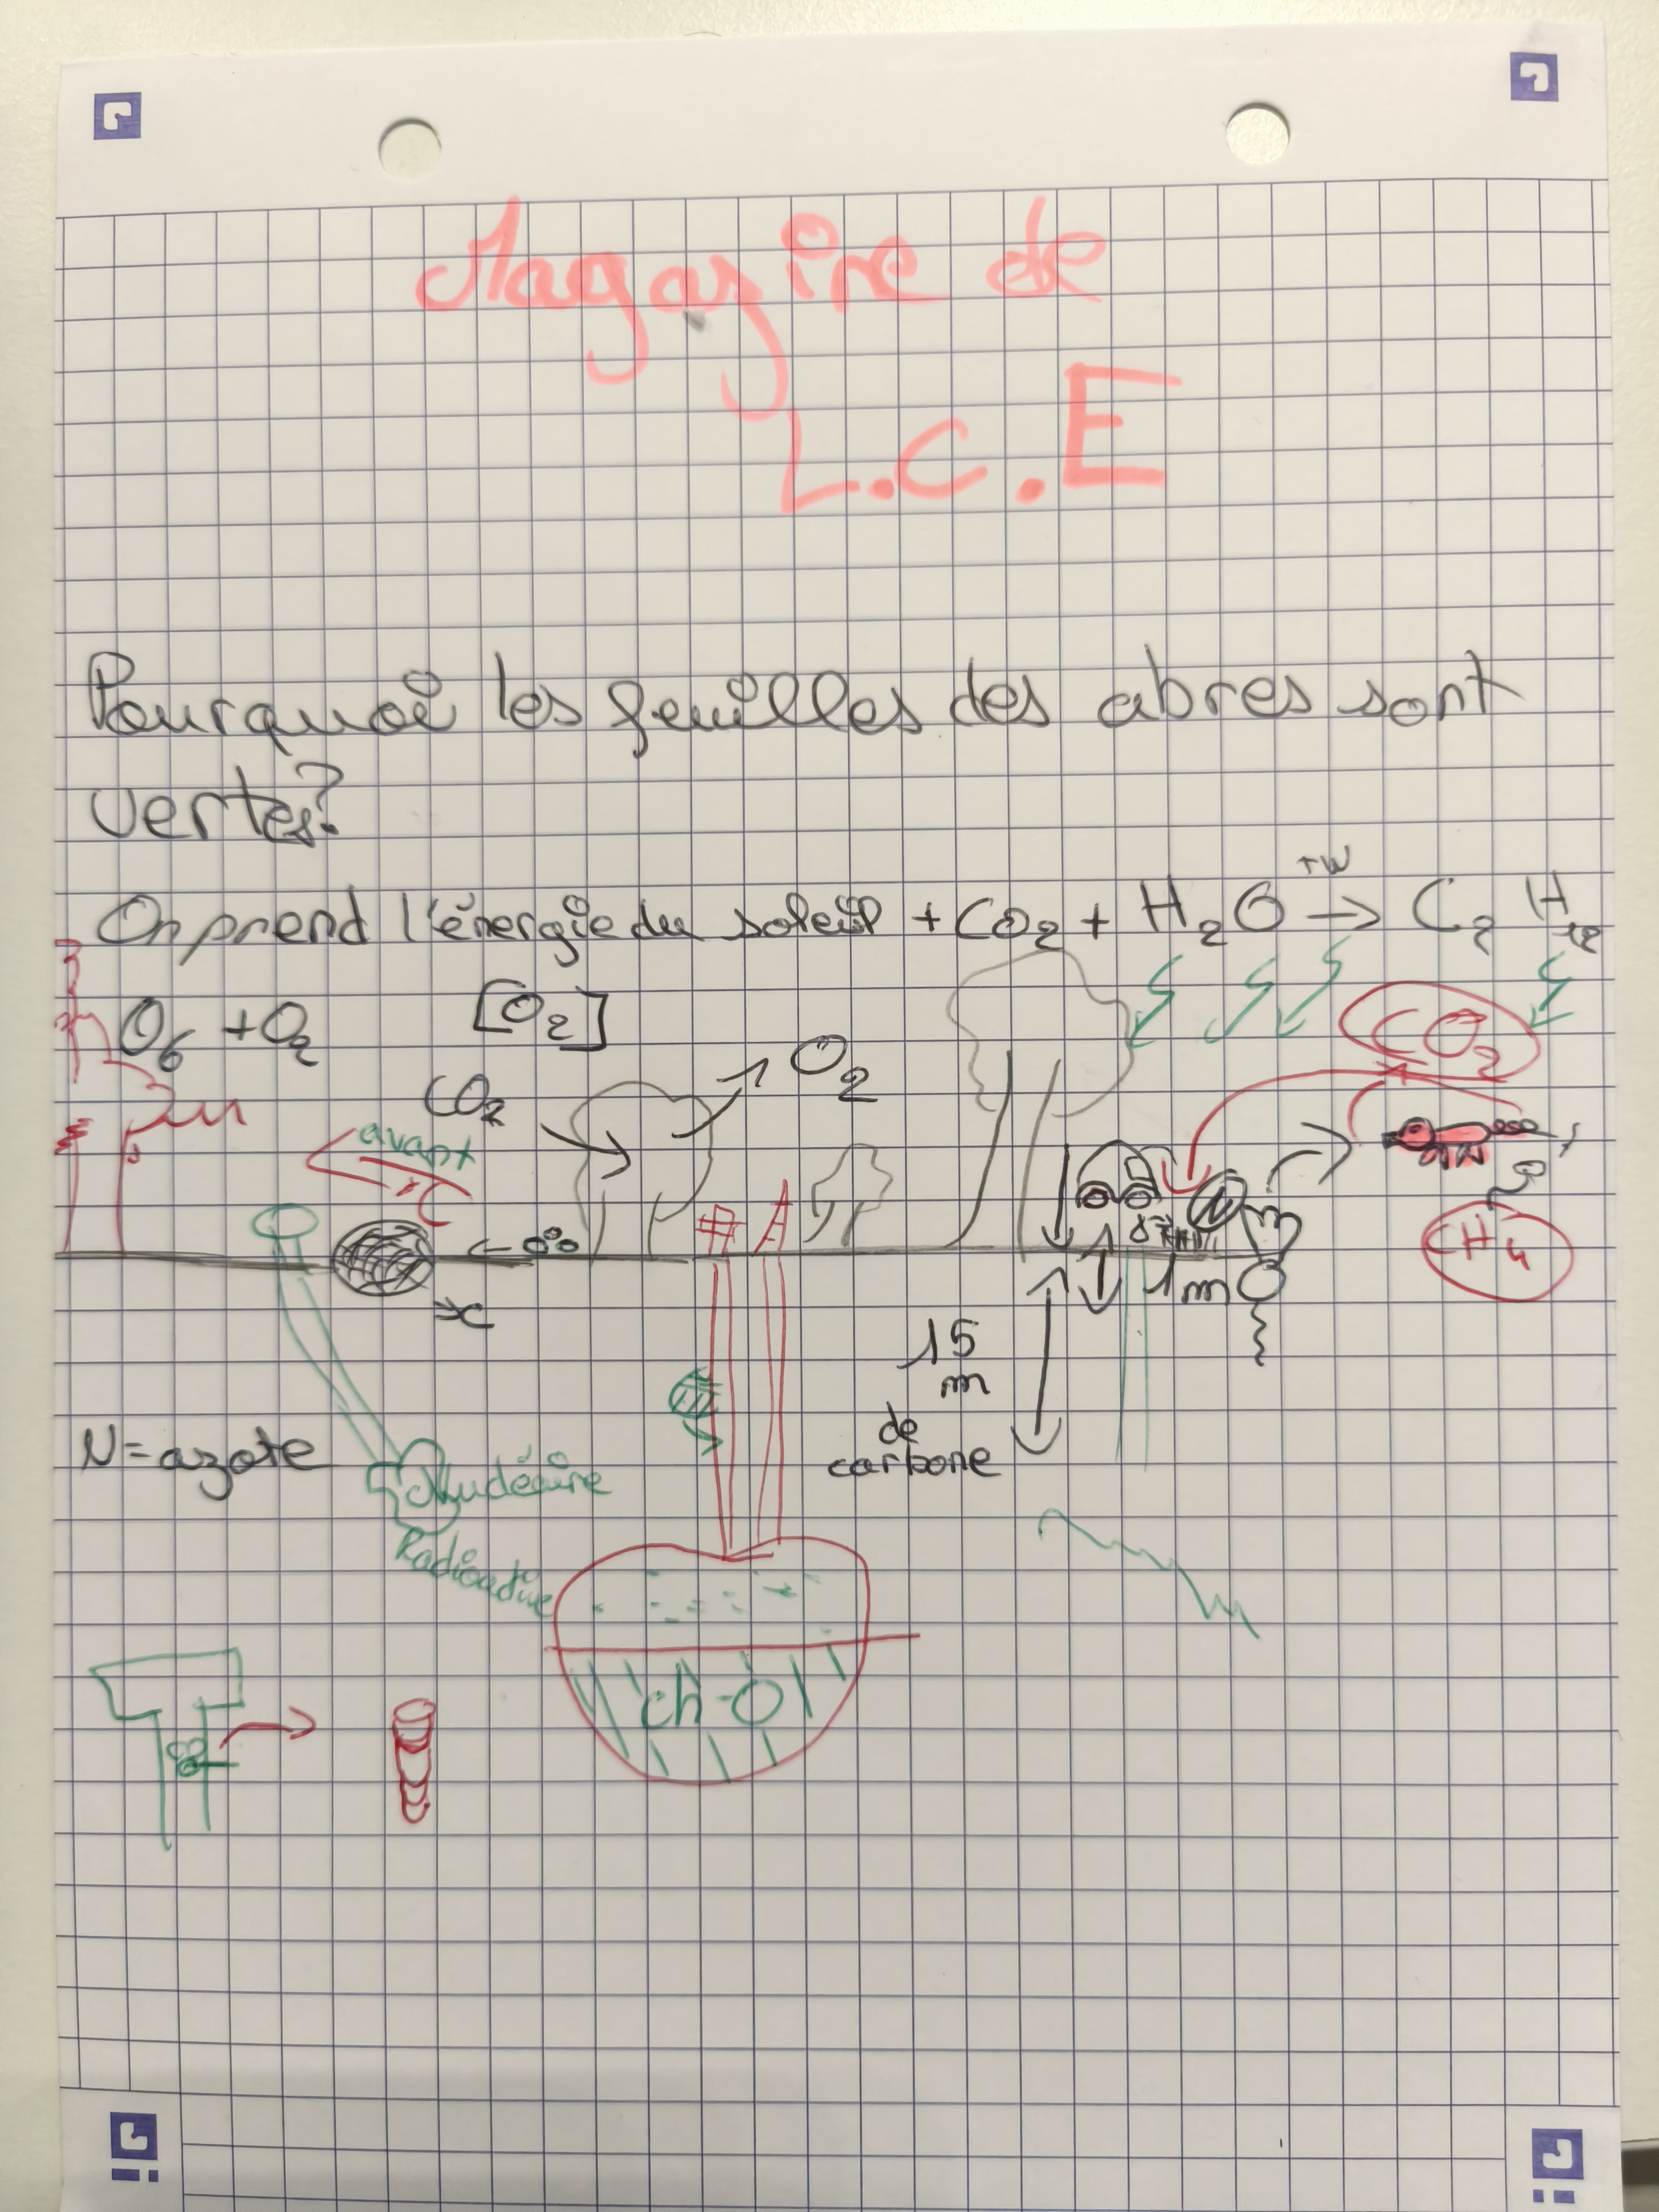 Magazine de
L.C.E
Pourquoi les feuilles des abres sont
vertes?
On prend l'énergie du soleil + CO2 + H2O +W → C2 H12
O6 + O2
[O2]
CO2
O2
CO2
avant
CH4
1m
15
m
de
carbone
N = azote
Nudéaire
Radioadive
ch-O